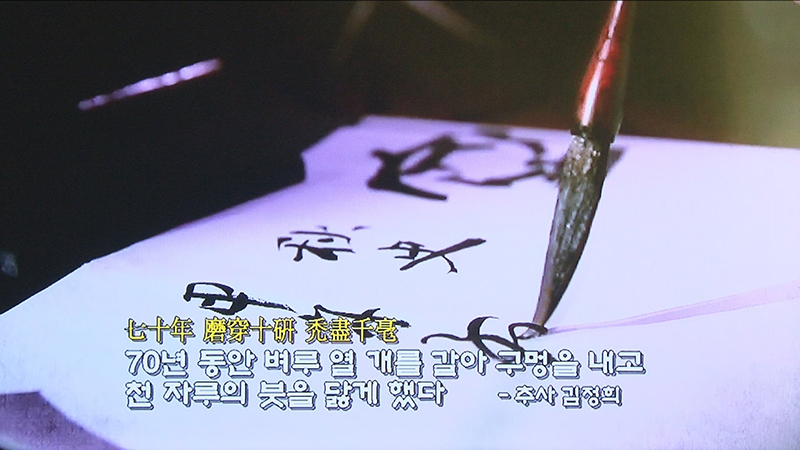 秋史
七十年 磨穿十硏 禿盡千毫
70년 동안 벼루 열 개를 갈아 구멍을 내고
천 자루의 붓을 닳게 했다 - 추사 김정희